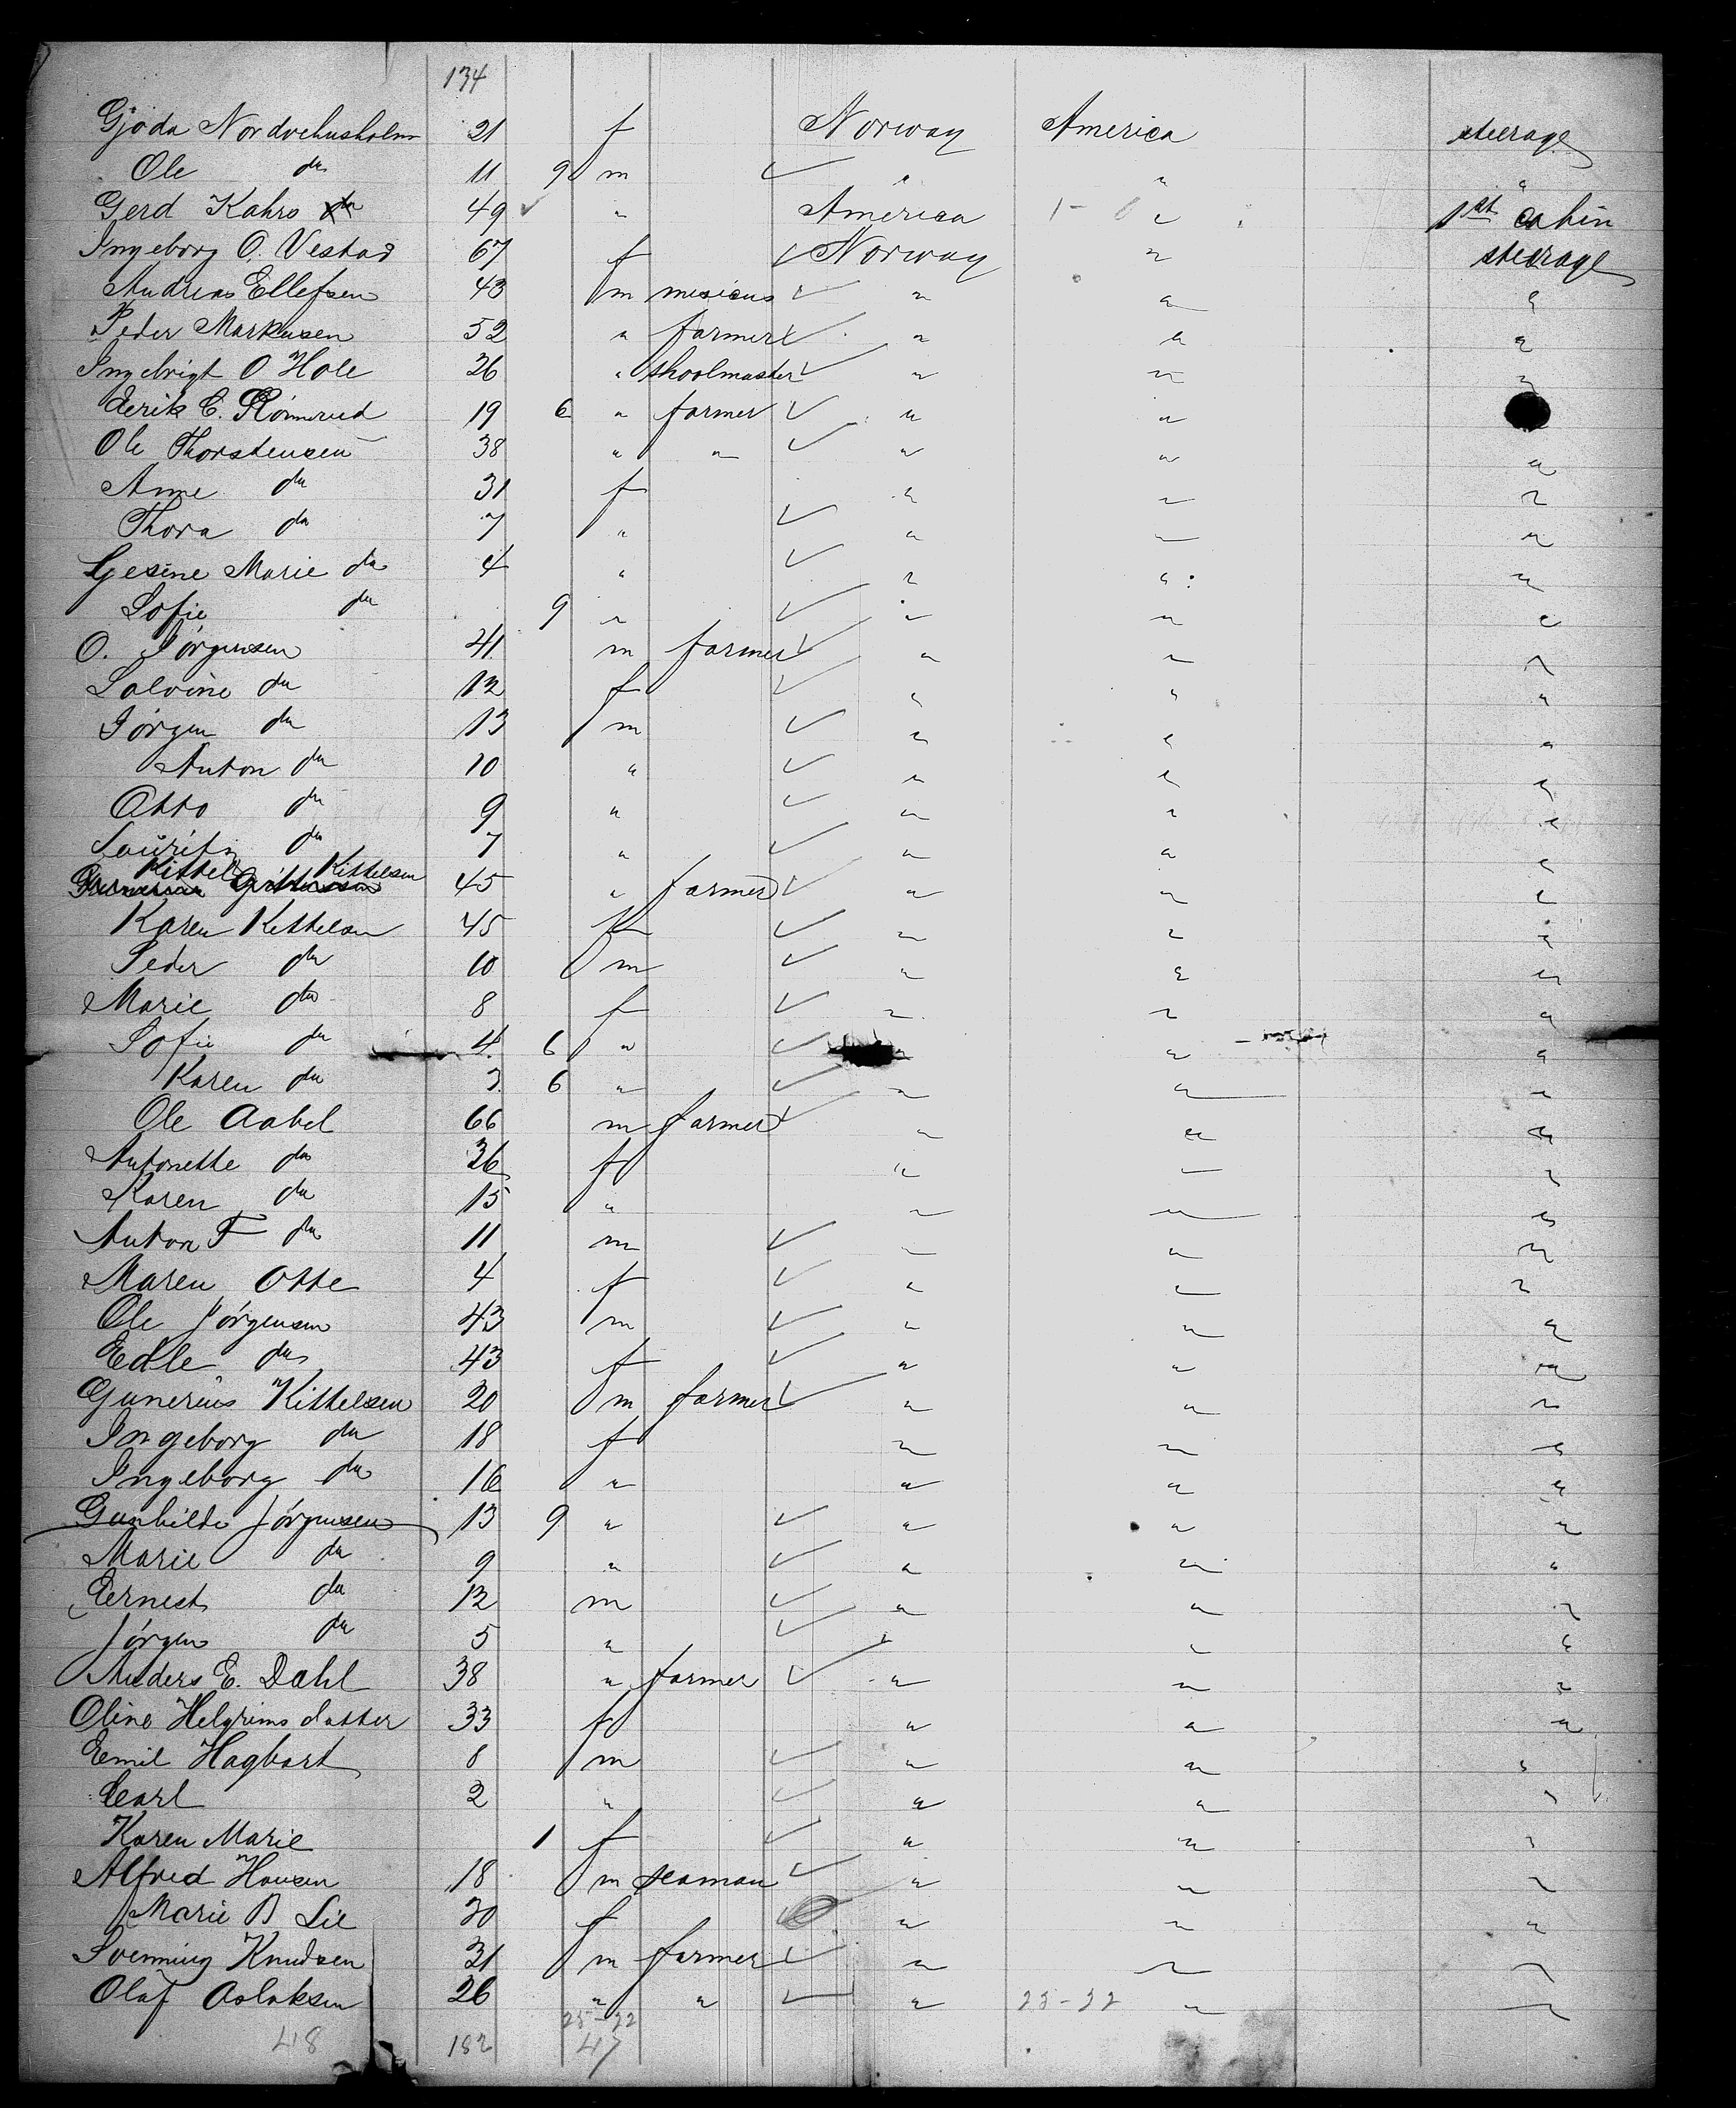 134
Gjoda Nordvehusholm 21 f Norway America steerage
Ole do 11 9 m " " "
Gerd Kahrs do 49 " America 1 - " 1st cabin
Ingeborg O. Vestad 67 f Norway " steerage
Andreas Ellefsen 43 m " " "
Peder Markusen 52 " farmer " " "
Ingebrigt O Hole 26 " skoolmaster " " "
Eerik C. Römerud 19 6 " farmer " "
Ole Thorstensen 38 " " " " "
Anne do 31 f " " "
Thora do 7 " " " "
Gesine Marie do 4 " " " "
Sofie do 9 " " " "
O. Jørgensen 41 m farmer " " "
Salvine do 12 f " " "
Jørgen do 13 m " " "
Anton do 10 " " " "
Otto do 9 " " " "
Lauritz do 7 " " " "
Kittel Kittelsen 45 " farmer " " "
Karen Kittelsen 45 f " " "
Peder do 10 m " " "
Marie do 8 f " " "
Sofie do 4 6 " " "
Karen do 3 6 " " " "
Ole Aabel 66 m farmer " " "
Antonette do 36 f " " "
Karen do 15 " " " "
Anton F do 11 m " " "
Maren Otte 4 f " " "
Ole Jørgensen 43 m " " "
Edle do 43 f " " "
Gunerius Kittelsen 20 m farmer " " "
Ingeborg do 18 f " " "
Ingeborg do 16 " " " "
Gunhilde Jørgensen 13 9 " " " "
Marie do 9 " " " "
Eernest do 12 m " " "
Jørgen do 5 " " " "
Anders E. Dahl 38 " farmer " " "
Oline Helgrims datter 33 f " " "
Eemil Hagbart 8 m " " "
Carl 2 " " " "
Karen Marie 1 f " " "
Alfred Hansen 18 m seaman " " "
Marie B Lie 30 f " " "
Svenning Knudsen 31 m farmer " " "
Olaf Aslaksen 26 " " " 25-22 " "
25-22
48 182 47